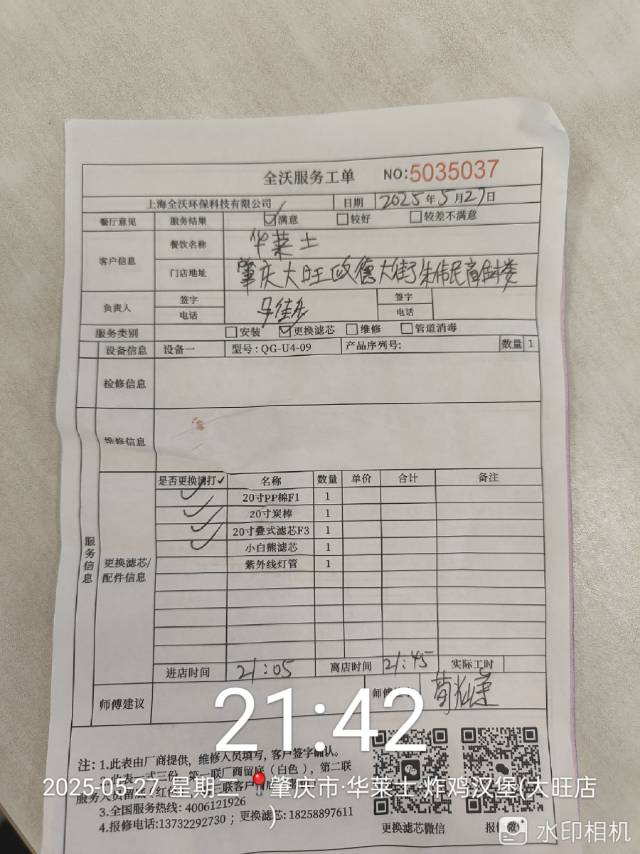 全沃服务工单 NO:5035037
上海全沃环保科技有限公司 日期 2025年5月27日
餐厅意见 服务结果 ☑满意 □较好 □较差不满意
客户信息 餐饮名称 华莱士
门店地址 肇庆大旺政德大街朱伟民商住楼
负责人 签字 签字
电话 电话
服务类别 □安装 ☑更换滤芯 □维修 □管道消毒
设备信息 设备一 型号:QG-U4-09 产品序列号: 数量 1
检修信息
维修信息
服务信息
更换滤芯/配件信息
是否更换请打✓ 名称 数量 单价 合计 备注
✓ 20寸PP棉F1 1
✓ 20寸炭棒 1
✓ 20寸叠式滤芯F3 1
✓ 小白熊滤芯 1
紫外线灯管 1
进店时间 21:05 离店时间 21:45 实际工时
师傅建议 师傅
21:42
注:1.此表由厂商提供，维修人员填写，客户签字确认。
2.此表一式三份，第一联厂商留底(白色)，第二联
服务人员留
3.全国服务热线:4006121926
4.报修电话:13732292730；更换滤芯:18258897611
更换滤芯微信 报修
2025-05-27 星期二 肇庆市·华莱士·炸鸡汉堡(大旺店)
水印相机